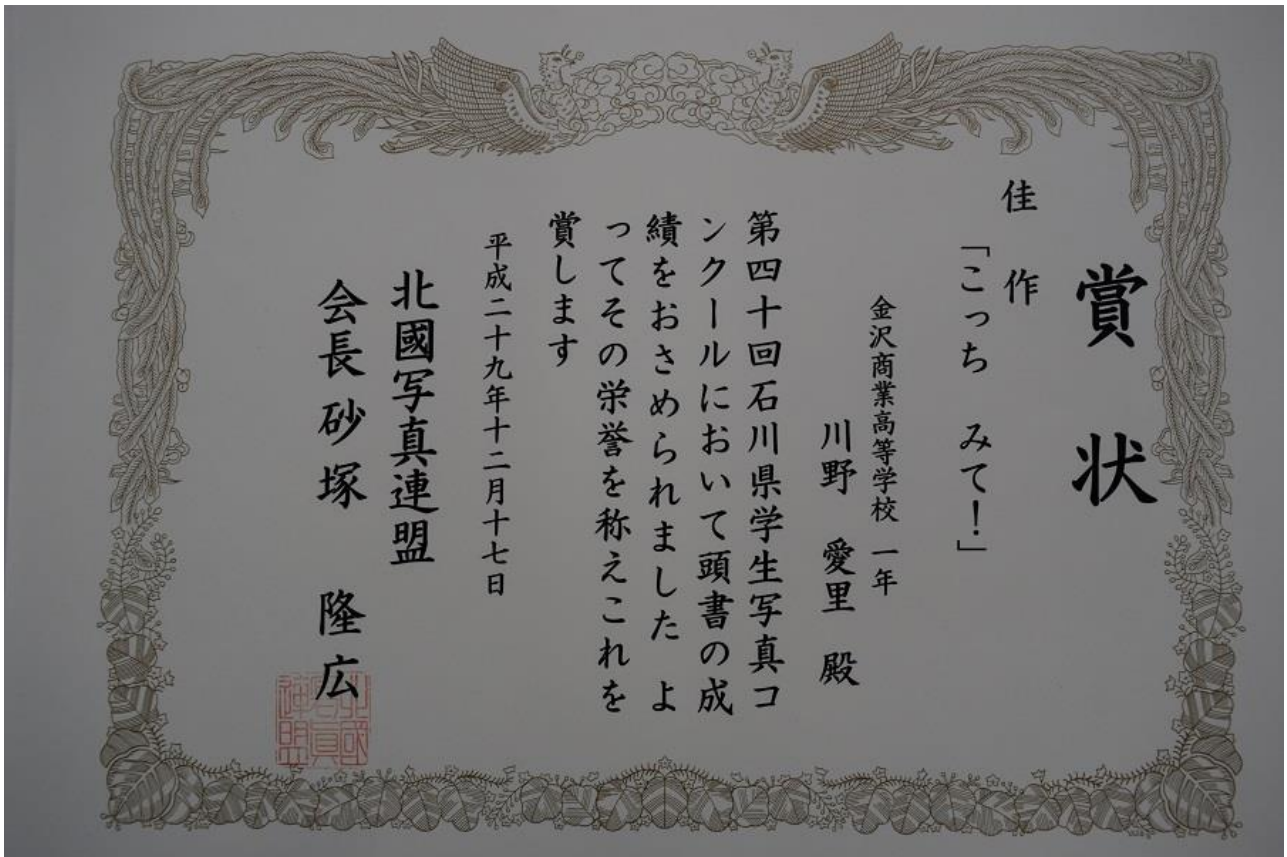 賞状
佳作
「こっち みて！」
金沢商業高等学校 一年
川野 愛里 殿
第四十回石川県学生写真コ
ンクールにおいて頭書の成
績をおさめられました よ
ってその栄誉を称えこれを
賞します
平成二十九年十二月十七日
北國写真連盟
会長 砂塚 隆広
北國寫真連盟